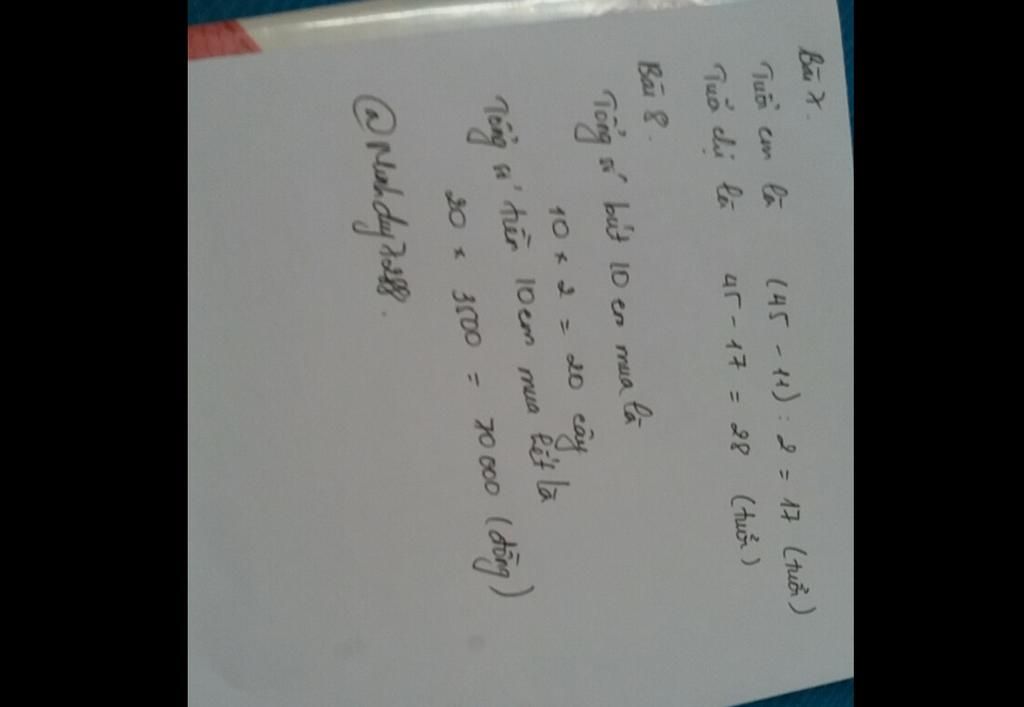 Bài 7.
Tuổi em là (45 - 11) : 2 = 17 (tuổi)
Tuổi chị là 45 - 17 = 28 (tuổi)
Bài 8.
Tổng số bút 10 em mua là
10 × 2 = 20 cây
Tổng số tiền 10 em mua hết là
20 × 3500 = 70000 (đồng)
@Minhduy7288.